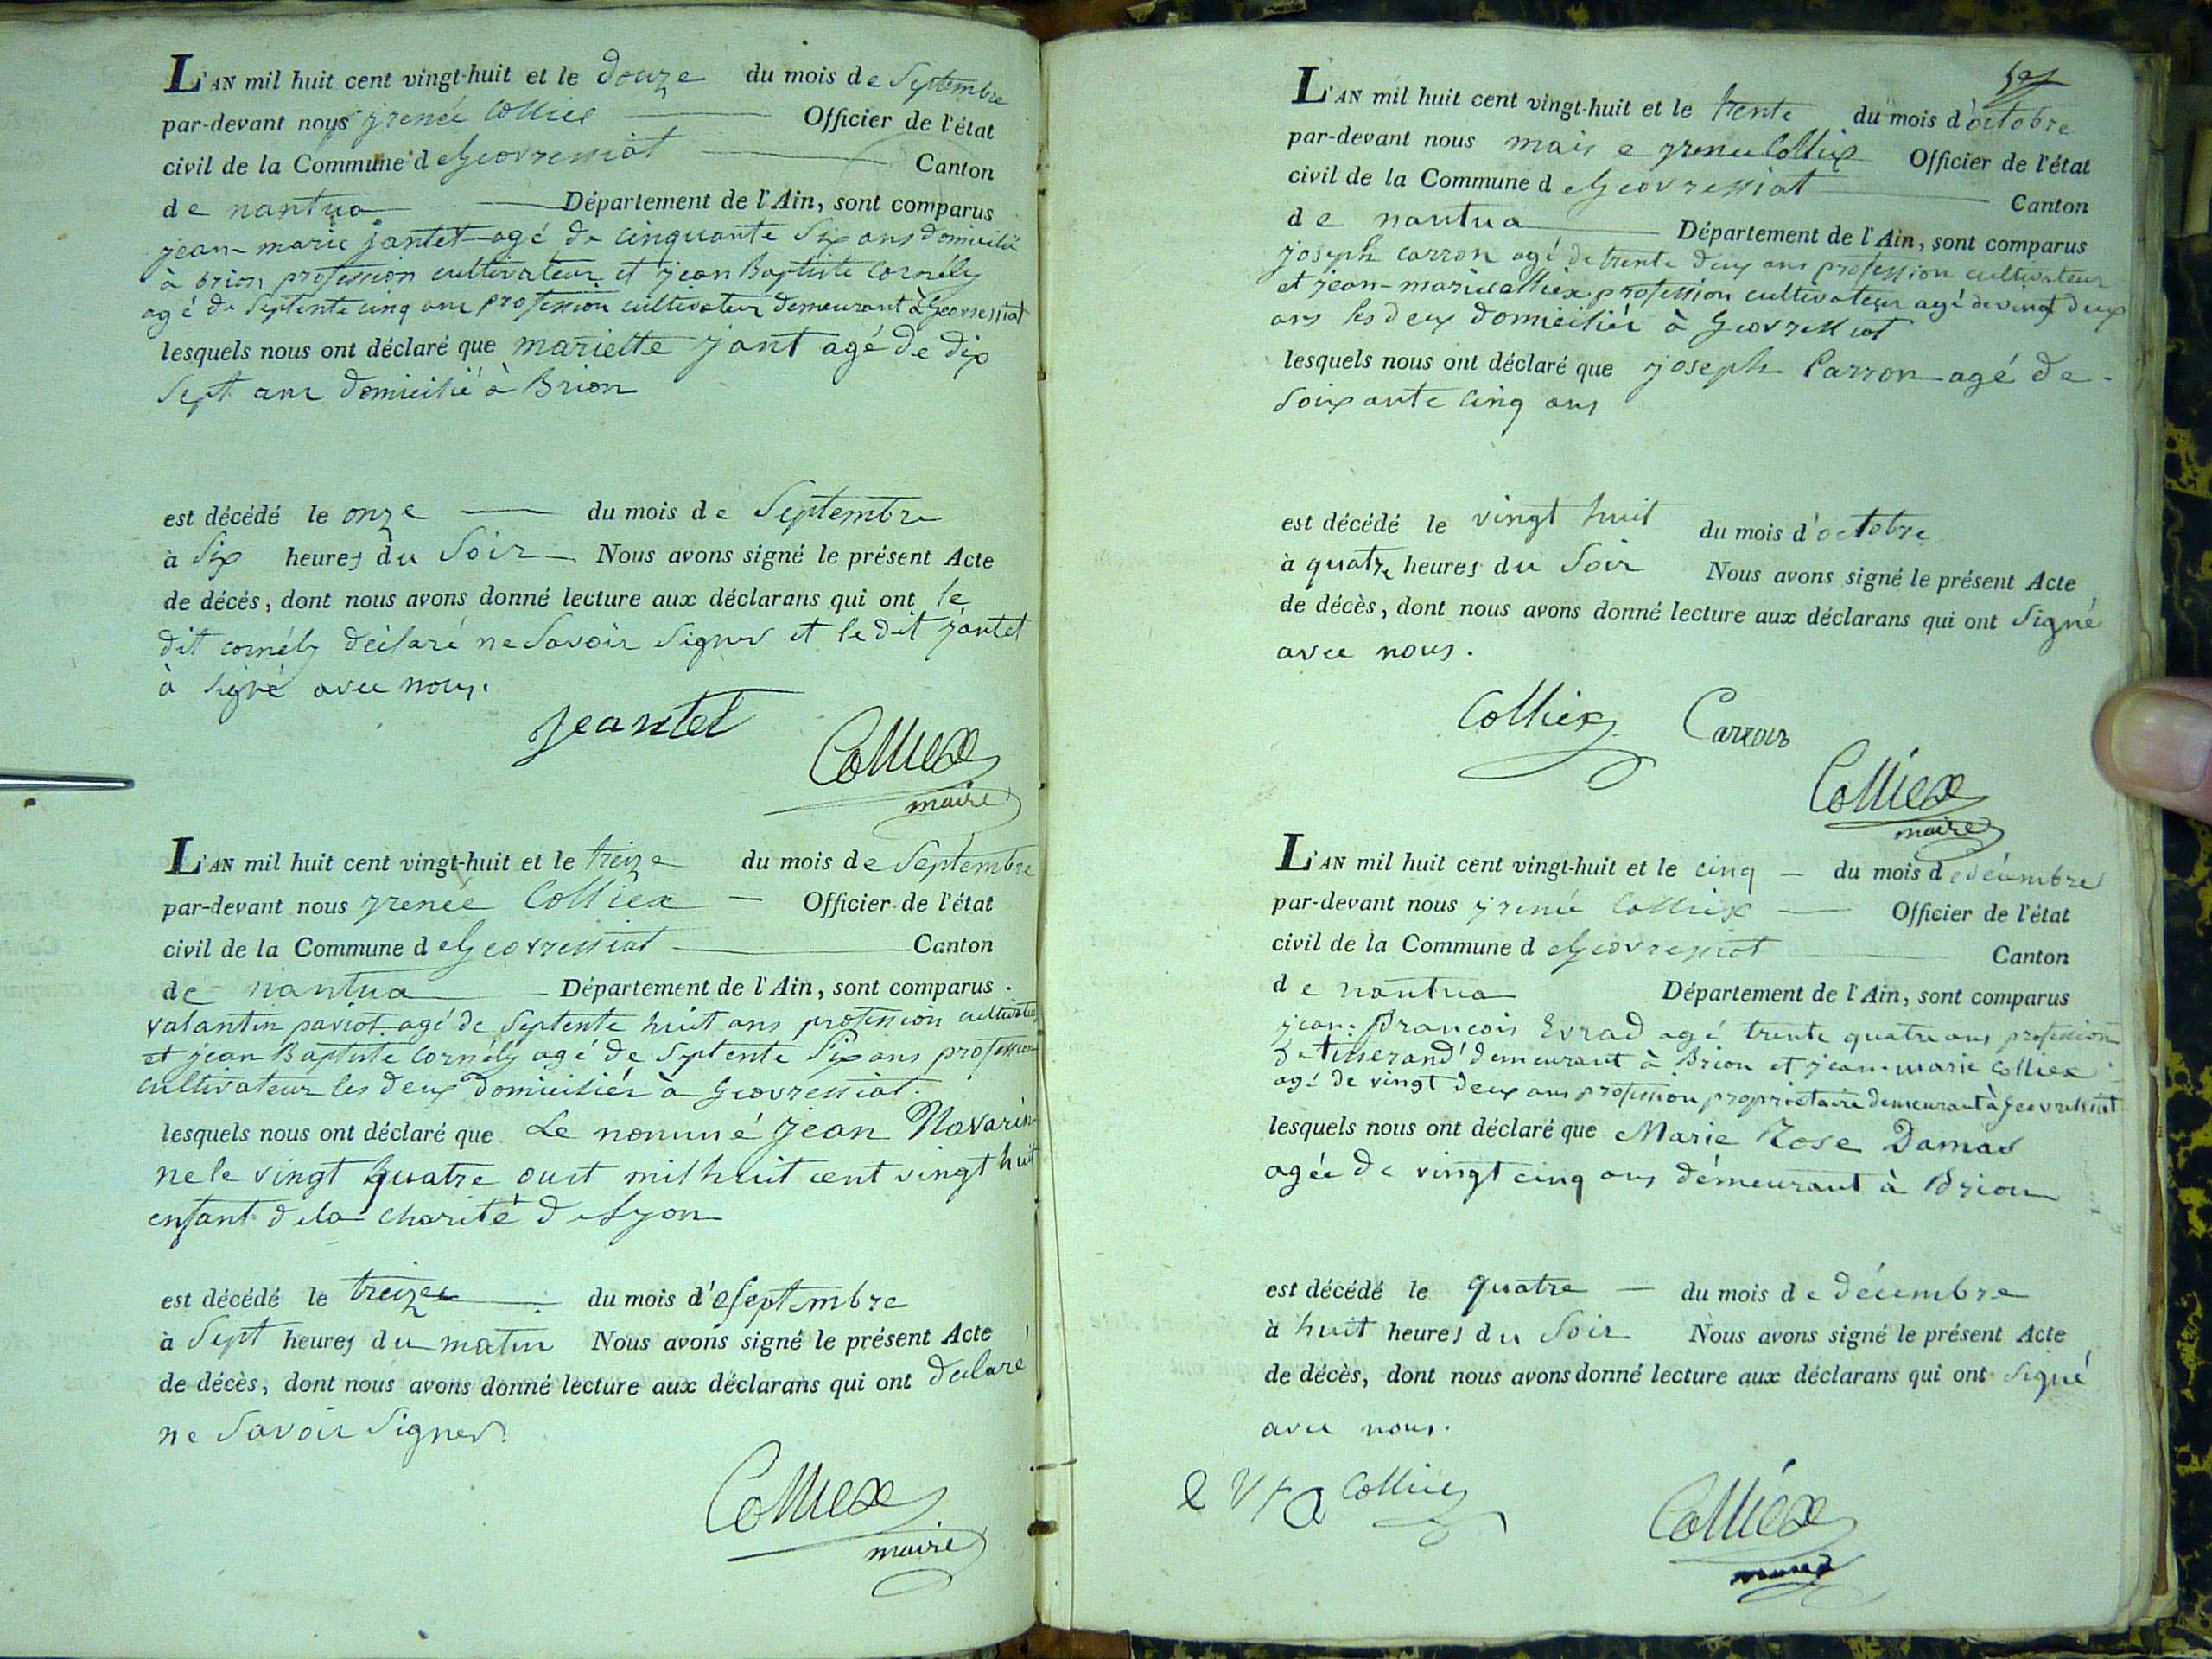 L'AN mil huit cent vingt-huit et le douze du mois de Septembre
par-devant nous yrenée Colliex Officier de l'état
civil de la Commune de Geovressiat Canton
de nantua Département de l'Ain, sont comparus
jean-marie jantet agé de cinquante Six ans domicilié
à brion profession cultivateur et jean Baptiste Cornély
agé de Septente cinq ans profession cultivateur demeurant à Geovressiat
lesquels nous ont déclaré que mariette jant agé de dix
Sept ans domicilié à Brion
est décédé le onze du mois de Septembre
à Six heures du Soir Nous avons signé le présent Acte
de décés, dont nous avons donné lecture aux déclarans qui ont le
dit cornély déclaré ne Savoir Signer et le dit jantet
à signé avec nous.
Jeantet
Colliex
maire
L'AN mil huit cent vingt-huit et le treize du mois de Septembre
par-devant nous yrenée Colliex Officier de l'état
civil de la Commune de Geovressiat Canton
de nantua Département de l'Ain, sont comparus
valantin paviot agé de Septente huit ans profession cultivateur
et jean Baptiste Cornély agé de Septente Six ans profession
cultivateur les deux domiciliés à Geovressiat.
lesquels nous ont déclaré que Le nommé jean Navarin
ne le vingt quatre oust mil huit cent vingt huit
enfant de la charité de Lyon
est décédé le treize du mois d'eSeptembre
à Sept heures du matin Nous avons signé le présent Acte
de décès, dont nous avons donné lecture aux déclarans qui ont declaré
ne Savoir Signer.
Colliex
maire
L'AN mil huit cent vingt-huit et le trente du mois d'octobre
par-devant nous maire yrenee Colliex Officier de l'état
civil de la Commune de Geovressiat Canton
de nantua Département de l'Ain, sont comparus
joseph carron agé de trente deux ans profession cultivateur
et jean-marie colliex profession cultivateur agé de vingt deux
ans les deux domiciliés à Geovressiat
lesquels nous ont déclaré que joseph Carron agé de
Soixante cinq ans
est décédé le vingt huit du mois d'octobre
à quatre heures du Soir Nous avons signé le présent Acte
de décès, dont nous avons donné lecture aux déclarans qui ont Signé
avec nous.
Colliex Carron
Colliex
maire
L'AN mil huit cent vingt-huit et le cinq du mois de décembre
par-devant nous yrenée Colliex Officier de l'état
civil de la Commune de Geovressiat Canton
de nantua Département de l'Ain, sont comparus
jean-françois Evrad agé trente quatre ans profession
de tisserand demeurant à Brion et jean-marie colliex
agé de vingt deux ans profession propriétaire demeurant à Geovressiat
lesquels nous ont déclaré que Marie Rose Damas
agée de vingt cinq ans démeurant à Brion
est décédé le quatre du mois de décembre
à huit heures du Soir Nous avons signé le présent Acte
de décès, dont nous avons donné lecture aux déclarans qui ont signé
avec nous.
Colliex
Colliex
maire